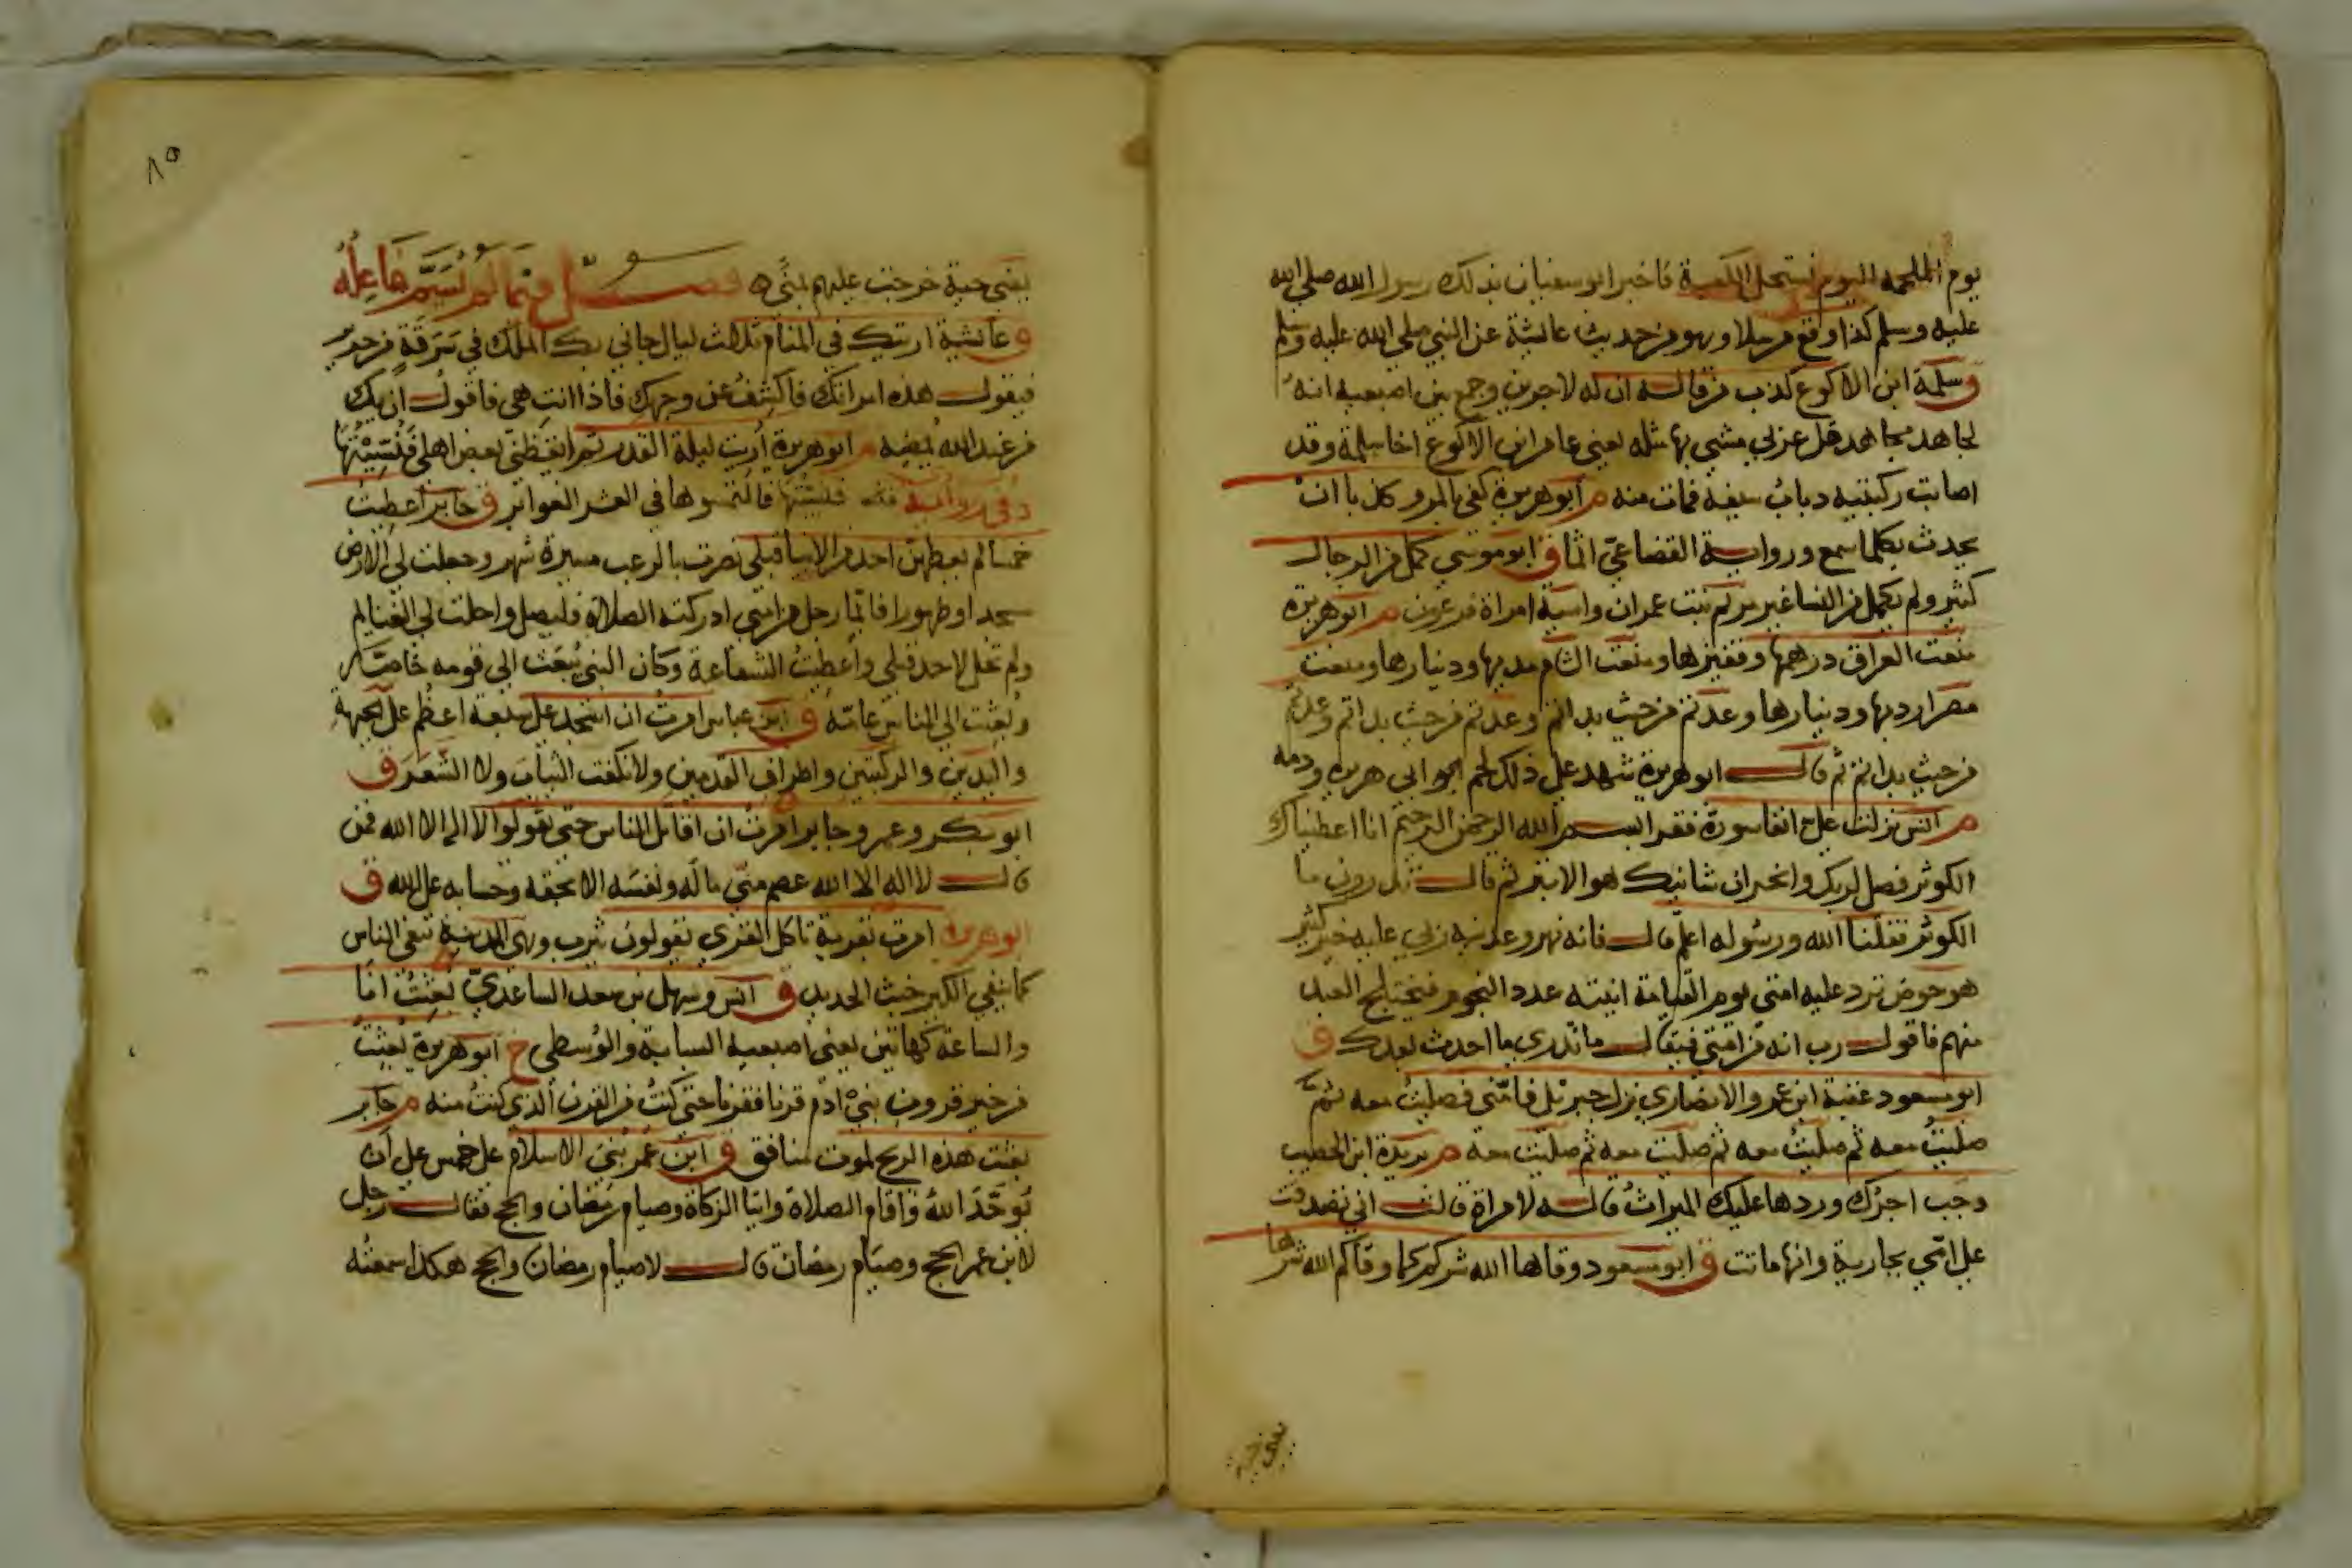 يوم الملحمة اليوم تستحل الكعبة فاخبر ابو سفيان بذلك رسول الله صلى الله
عليه وسلم كذا وقع مرسلا وهو من حديث عائشة عن النبي صلى الله عليه وسلم
ق سلمة ابن الاكوع كذب من قاله ان له لاجرين وجمع بين اصبعيه انه
لجاهد مجاهد قل عربي مشى بها مثله يعني عامر ابن الاكوع اخا سلمة وقد
اصابت ركبتيه ذباب سيفه فمات منه م ابو هريرة كفى بالمرء كذبا ان
يحدث بكلما سمع ورواية القضاعي اثما ق ابو موسى كمل من الرجال
كثير ولم يكمل من النسا غير مريم بنت عمران واسية امراة فرعون م ابو هريرة
منعت العراق درهمها وقفيزها ومنعت الشام مديها ودينارها ومنعت
مصر اردبها ودينارها وعدتم من حيث بداتم وعدتم من حيث بداتم وعدتم
من حيث بداتم ثم قال ابو هريرة شهد على ذلك لحم ابي هريرة ودمه
م انس نزلت علي انفا سورة فقرا بسم الله الرحمن الرحيم انا اعطيناك
الكوثر فصل لربك وانحر ان شانيك هو الابتر ثم قال تدرون ما
الكوثر فقلنا الله ورسوله اعلم قال فانه نهر وعدنيه ربي عليه خير كثير
هو حوض ترد عليه امتي يوم القيامة انيته عدد النجوم فيختلج العبد
منهم فاقول رب انه من امتي فيقال ما تدري ما احدث بعدك ق
ابو مسعود عقبة ابن عمرو الانصاري نزل جبرئل فامني فصليت معه ثم
صليت معه ثم صليت معه ثم صليت معه ثم صليت معه م بريدة ابن الحصيب
وجب اجرك وردها عليك الميراث قاله لامراة قالت اني تصدقت
على امي بجارية وانها ماتت ق ابو مسعود وقاها الله شركم كما وقاكم الله شرها
يعني حية
٨٥
يعني حية خرجت عليهم بمنى فصل فيما لم يسم فاعله
ق عائشة اريتك في المنام ثلاث ليال جاني بك الملك في سرقة من حرير
فيقول هذه امراتك فاكشف عن وجهك فاذا انت هي فاقول ان يك
من عند الله يمضه م ابو هريرة اريت ليلة القدر ثم ايقظني بعض اهلي فنسيتها
وفي رواية فنسيتها فالتمسوها في العشر الغوابر ق جابر اعطيت
خمسا لم يعطهن احد من الانبيا قبلي نصرت بالرعب مسيرة شهر وجعلت لي الارض
مسجدا وطهورا فايما رجل من امتي ادركته الصلاة فليصل واحلت لي الغنايم
ولم تحل لاحد قبلي واعطيت الشفاعة وكان النبي يبعث الى قومه خاصة
وبعثت الى الناس عامة ق ابن عباس امرت ان اسجد على سبعة اعظم على الجبهة
واليدين والركبتين واطراف القدمين ولا نكفت الثياب ولا الشعر ق
ابو بكر وعمر وجابر امرت ان اقاتل الناس حتى يقولوا لا اله الا الله فمن
قال لا اله الا الله عصم مني ماله ونفسه الا بحقه وحسابه على الله ق
ابو هريرة امرت بقرية تاكل القرى يقولون يثرب وهي المدينة تنفي الناس
كما ينفي الكير خبث الحديد ق انس وسهل بن سعد الساعدي بعثت انا
والساعة كهاتين يعني اصبعيه السبابة والوسطى خ ابو هريرة بعثت
من خير قرون بني ادم قرنا فقرنا حتى كنت من القرن الذي كنت منه م جابر
بعثت هذه الريح لموت منافق ق ابن عمر بني الاسلام على خمس على ان
يوحد الله واقام الصلاة وايتا الزكاة وصيام رمضان والحج فقال رجل
لابن عمر الحج وصيام رمضان قال لا صيام رمضان والحج هكذا سمعته